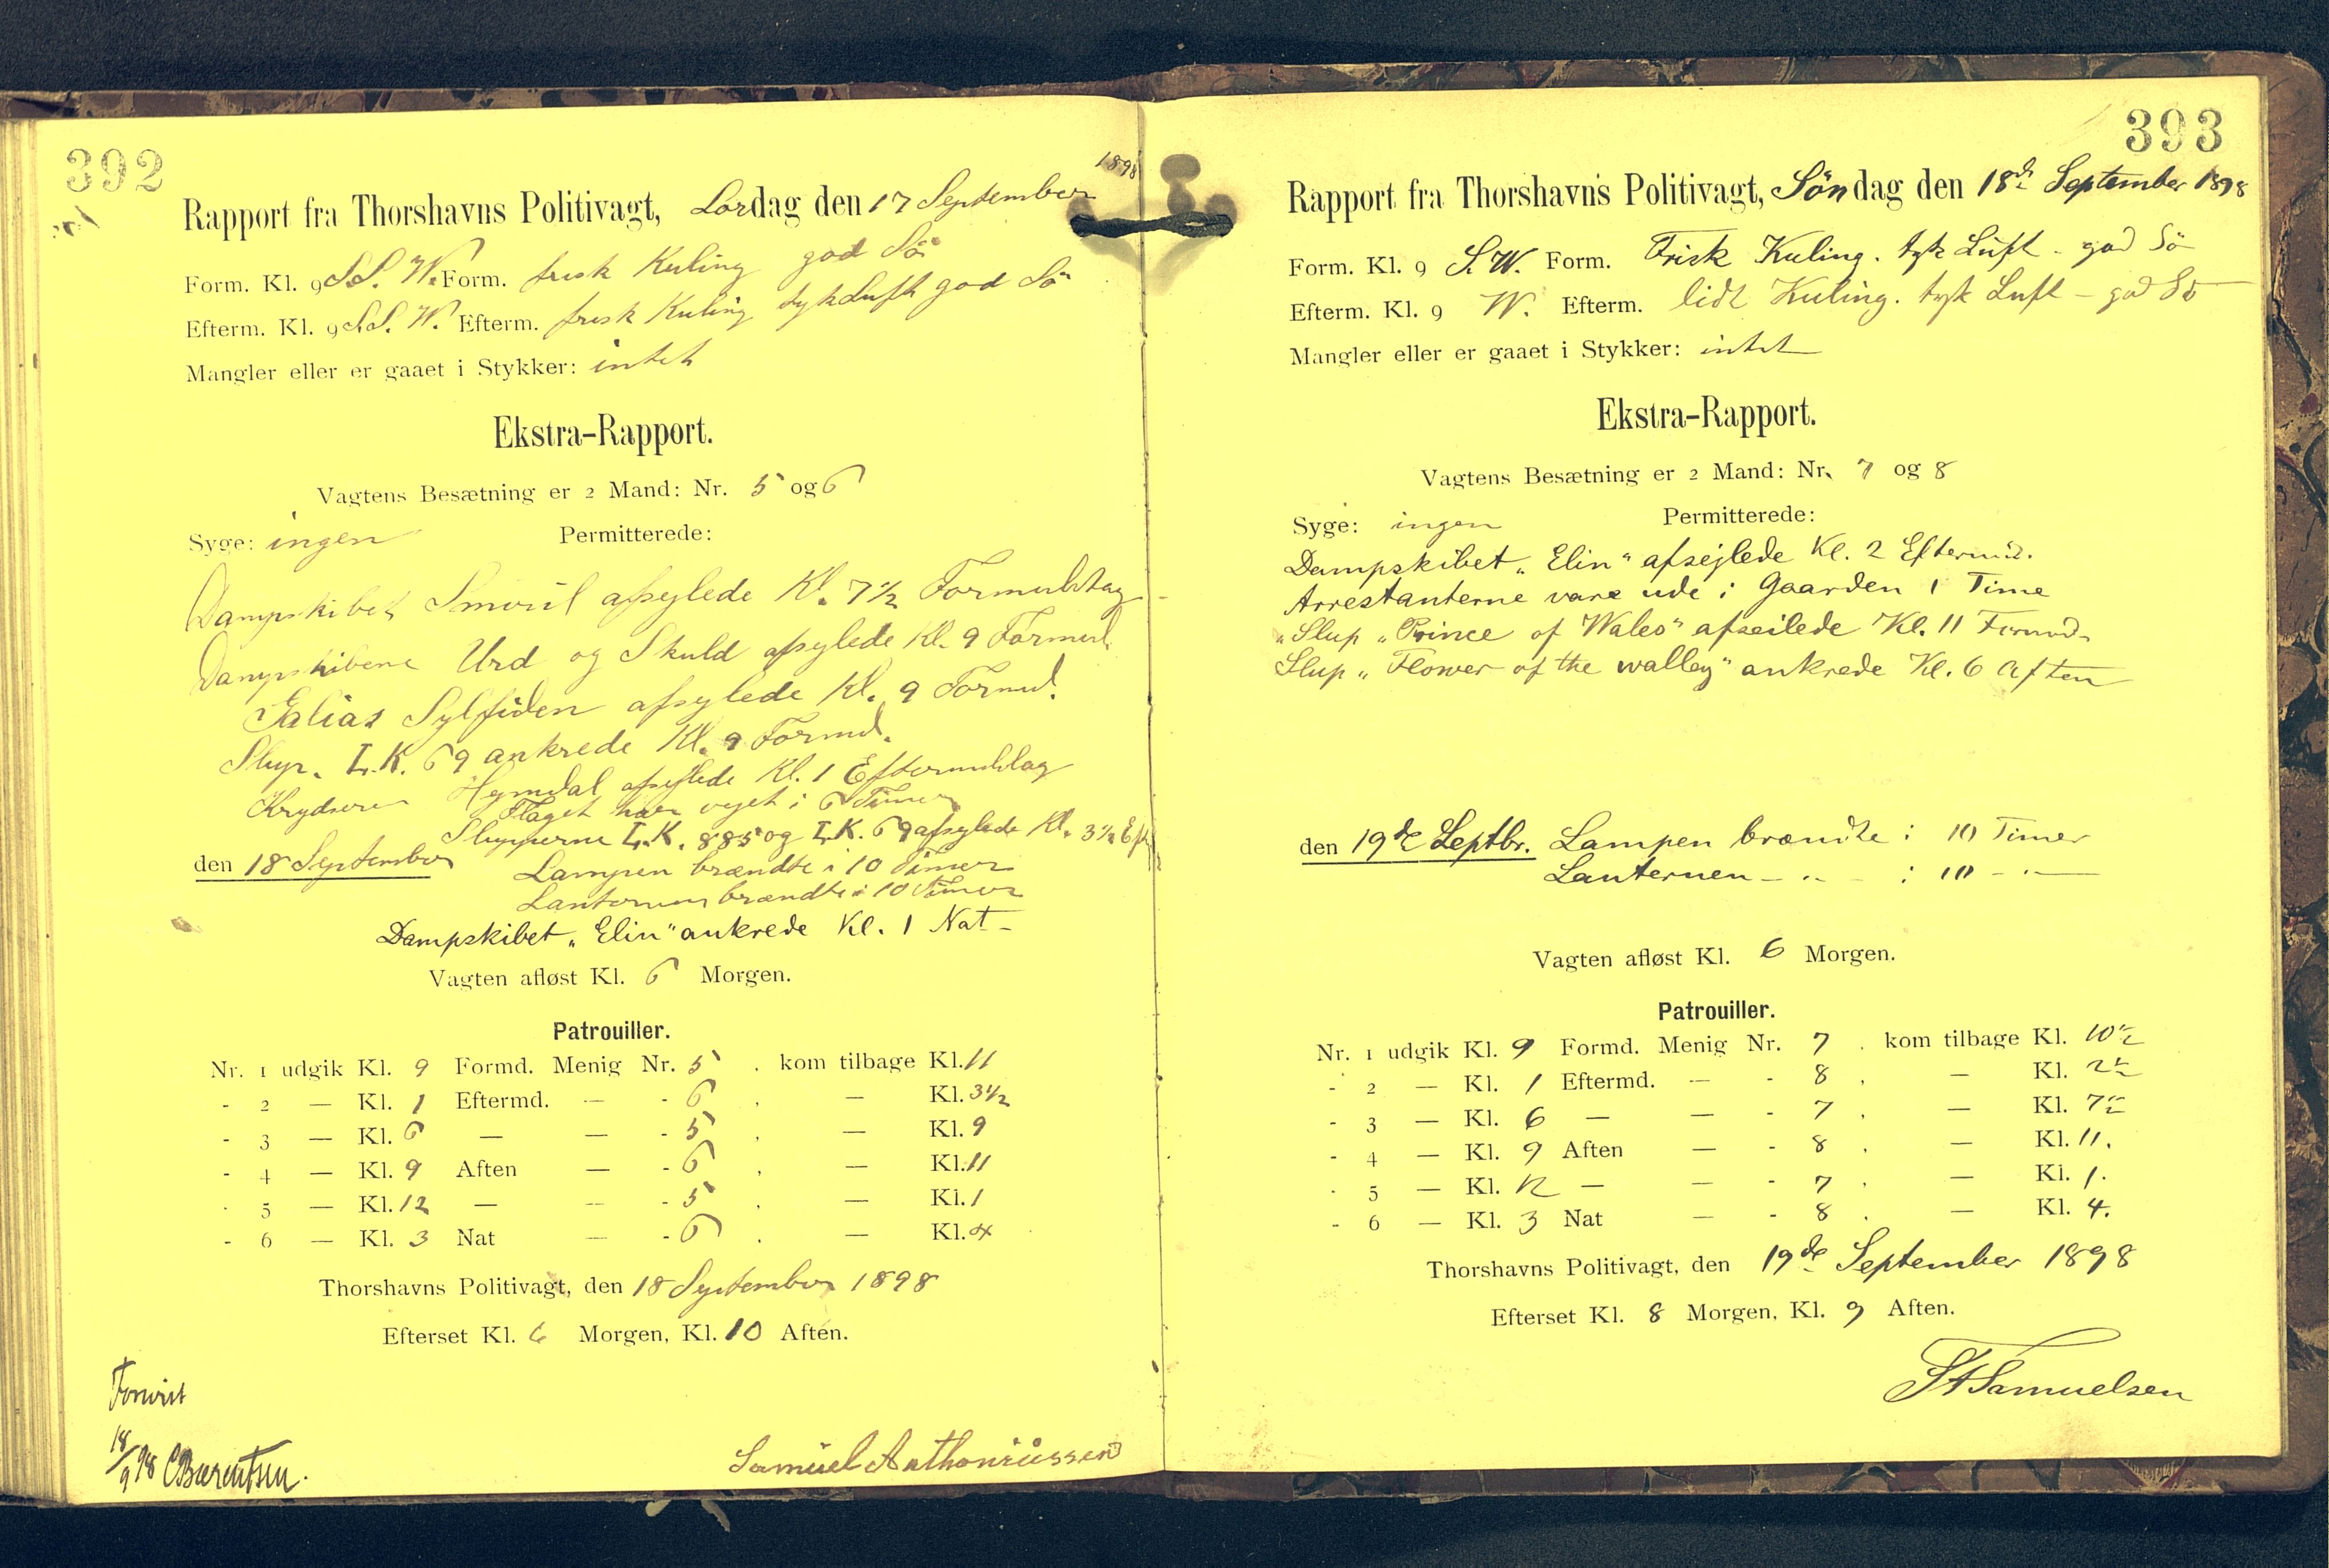 392
Rapport fra Thorshavns Politivagt, Lørdag den 17 September 1898
Form. Kl. 9 S.S.W. Form. frisk Kuling god Sö
Efterm. Kl. 9 S.S.W. Efterm. frisk Kuling tyk Luft god Sö
Mangler eller er gaaet i Stykker: intet
Ekstra-Rapport.
Vagtens Besætning er 2 Mand: Nr. 5 og 6
Syge: ingen Permitterede:
Dampskibet Smiril afsejlede Kl. 7½ Formidtag
Dampskibene Urd og Skuld afsejlede Kl. 9 Formd.
Galias Sylfiden afsejlede Kl. 9 Formd.
Slup. L.K. 69 ankrede Kl. 9 Formd.
Krydseren Hejmdal afsejlede Kl. 1 Eftermiddag
Flaget har vejet i 6 Timer
Slupperne L.K. 885 og L.K. 69 afsejlede Kl. 3½ Eft
den 18 September Lampen brændte i 10 Timer
Lanternen brændte i 10 Timer
Dampskibet „Elin" ankrede Kl. 1 Nat -
Vagten afløst Kl. 6 Morgen.
Patrouiller.
Nr. 1 udgik Kl. 9 Formd. Menig Nr. 5 . kom tilbage Kl. 11
- 2 — Kl. 1 Eftermd. — - 6 . — Kl. 3½
- 3 — Kl. 6 — — - 5 . — Kl. 9
- 4 — Kl. 9 Aften — - 6 . — Kl. 11
- 5 — Kl. 12 — — - 5 . — Kl. 1
- 6 — Kl. 3 Nat — - 6 . — Kl. 4
Thorshavns Politivagt, den 18 September 1898
Efterset Kl. 6 Morgen, Kl. 10 Aften.
Forevist
18/9 98 CBærentsen.
Samuel Anthoniussen
393
Rapport fra Thorshavns Politivagt, Söndag den 18de September 1898
Form. Kl. 9 S.W. Form. Frisk Kuling. tyk Luft - god Sö
Efterm. Kl. 9 W. Efterm. lidt Kuling. tyk Luft - god Sö
Mangler eller er gaaet i Stykker: intet
Ekstra-Rapport.
Vagtens Besætning er 2 Mand: Nr. 7 og 8
Syge: ingen Permitterede:
Dampskibet „Elin" afsejlede Kl. 2 Eftermd.
Arrestanterne vare ude i Gaarden 1 Time
„Slup „Prince of Wales" afseilede Kl. 11 Formd-
Slup „Flower of the walley" ankrede Kl. 6 Aften
den 19de Septbr. Lampen brændte i 10 Timer
Lanternen - „ - i 10 - „ -
Vagten afløst Kl. 6 Morgen.
Patrouiller.
Nr. 1 udgik Kl. 9 Formd. Menig Nr. 7 . kom tilbage Kl. 10½
- 2 — Kl. 1 Eftermd. — - 8 . — Kl. 2½
- 3 — Kl. 6 — — - 7 . — Kl. 7½
- 4 — Kl. 9 Aften — - 8 . — Kl. 11.
- 5 — Kl. 12 — — - 7 . — Kl. 1.
- 6 — Kl. 3 Nat — - 8 . — Kl. 4.
Thorshavns Politivagt, den 19de September 1898
Efterset Kl. 8 Morgen, Kl. 9 Aften.
Samuelsen